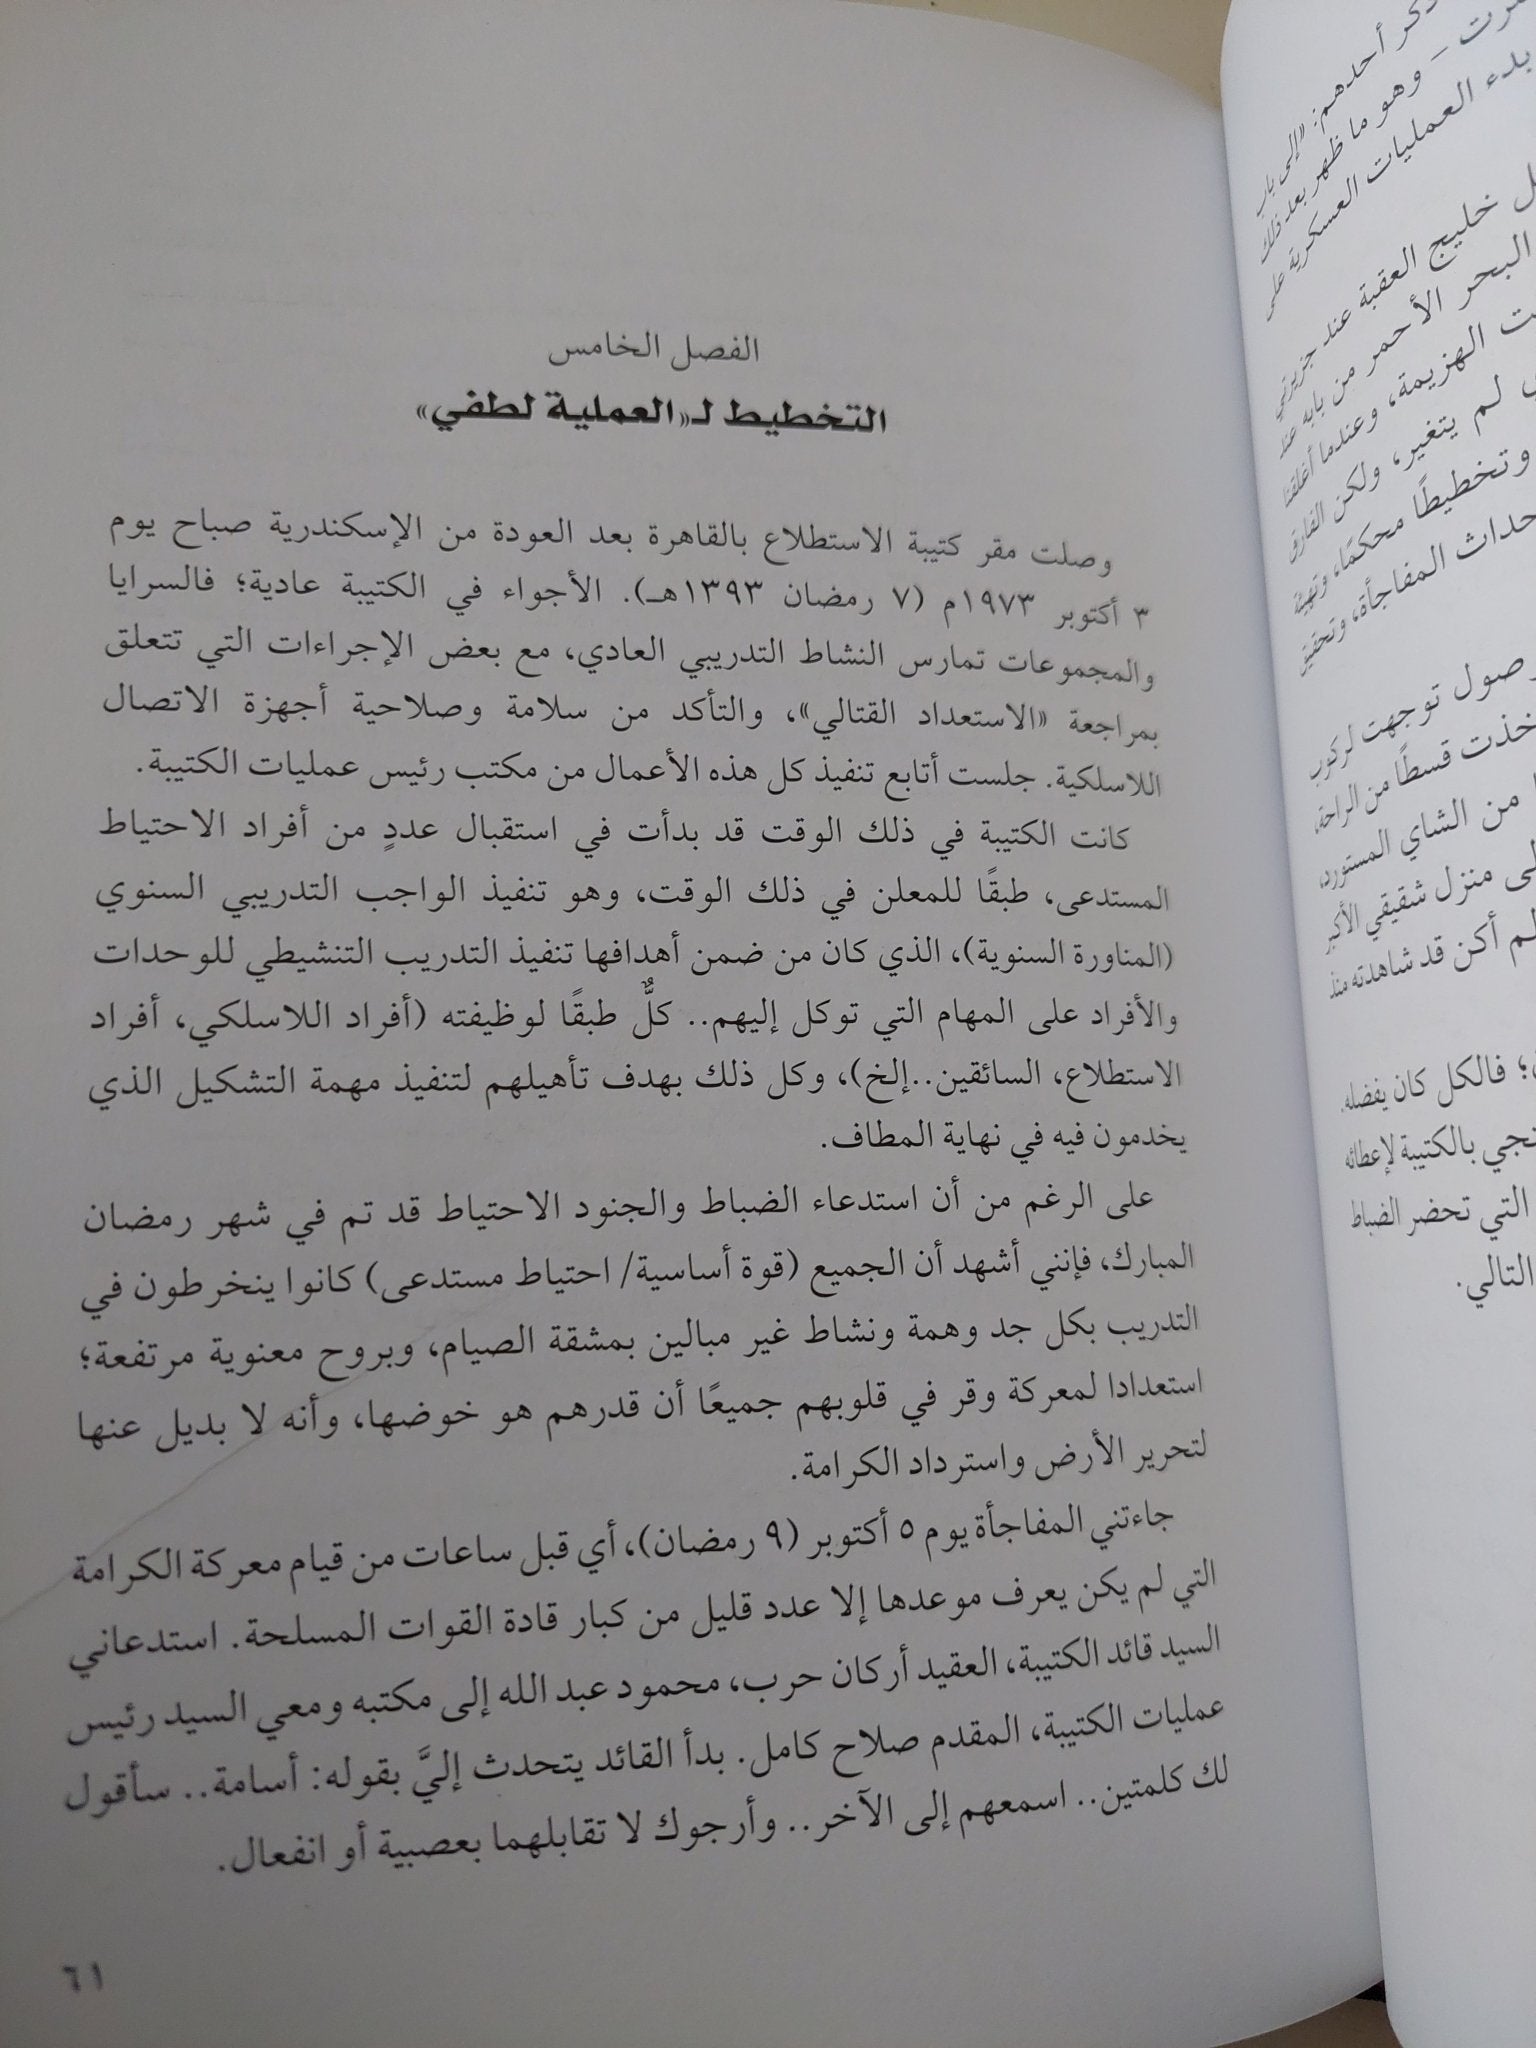 الفصل الخامس
التخطيط لـ«العملية لطفي»
وصلت مقر كتيبة الاستطلاع بالقاهرة بعد العودة من الإسكندرية صباح يوم
٣ أكتوبر ١٩٧٣م (٧ رمضان ١٣٩٣هـ). الأجواء في الكتيبة عادية؛ فالسرايا
والمجموعات تمارس النشاط التدريبي العادي، مع بعض الإجراءات التي تتعلق
بمراجعة «الاستعداد القتالي»، والتأكد من سلامة وصلاحية أجهزة الاتصال
اللاسلكية. جلست أتابع تنفيذ كل هذه الأعمال من مكتب رئيس عمليات الكتيبة.
كانت الكتيبة في ذلك الوقت قد بدأت في استقبال عددٍ من أفراد الاحتياط
المستدعى، طبقًا للمعلن في ذلك الوقت، وهو تنفيذ الواجب التدريبي السنوي
(المناورة السنوية)، الذي كان من ضمن أهدافها تنفيذ التدريب التنشيطي للوحدات
والأفراد على المهام التي توكل إليهم.. كلٌّ طبقًا لوظيفته (أفراد اللاسلكي، أفراد
الاستطلاع، السائقين..إلخ)، وكل ذلك بهدف تأهيلهم لتنفيذ مهمة التشكيل الذي
يخدمون فيه في نهاية المطاف.
على الرغم من أن استدعاء الضباط والجنود الاحتياط قد تم في شهر رمضان
المبارك، فإنني أشهد أن الجميع (قوة أساسية/ احتياط مستدعى) كانوا ينخرطون في
التدريب بكل جد وهمة ونشاط غير مبالين بمشقة الصيام، وبروح معنوية مرتفعة؛
استعدادا لمعركة وقر في قلوبهم جميعًا أن قدرهم هو خوضها، وأنه لا بديل عنها
لتحرير الأرض واسترداد الكرامة.
جاءتني المفاجأة يوم ٥ أكتوبر (٩ رمضان)، أي قبل ساعات من قيام معركة الكرامة
التي لم يكن يعرف موعدها إلا عدد قليل من كبار قادة القوات المسلحة. استدعاني
السيد قائد الكتيبة، العقيد أركان حرب، محمود عبد الله إلى مكتبه ومعي السيد رئيس
عمليات الكتيبة، المقدم صلاح كامل. بدأ القائد يتحدث إليَّ بقوله: أسامة.. سأقول
لك كلمتين.. اسمعهم إلى الآخر.. وأرجوك لا تقابلهما بعصبية أو انفعال.
٦١
ذكر أحدهم: «إلى باب
– وهو ما ظهر بعد ذلك
بدء العمليات العسكرية على
خليج العقبة عند جزيرتي
البحر الأحمر من بابه عند
الهزيمة، وعندما أغلقنا
لم يتغير، ولكن الفارق
وتخطيطًا محكمًا، وتهيئة
المفاجأة، وتحقيق
توجهت لركوب
قسطًا من الراحة،
من الشاي المستورد،
منزل شقيقي الأكبر
لم أكن قد شاهدته منذ
؛ فالكل كان يفضله.
بالكتيبة لإعطائه
التي تحضر الضباط
التالي.